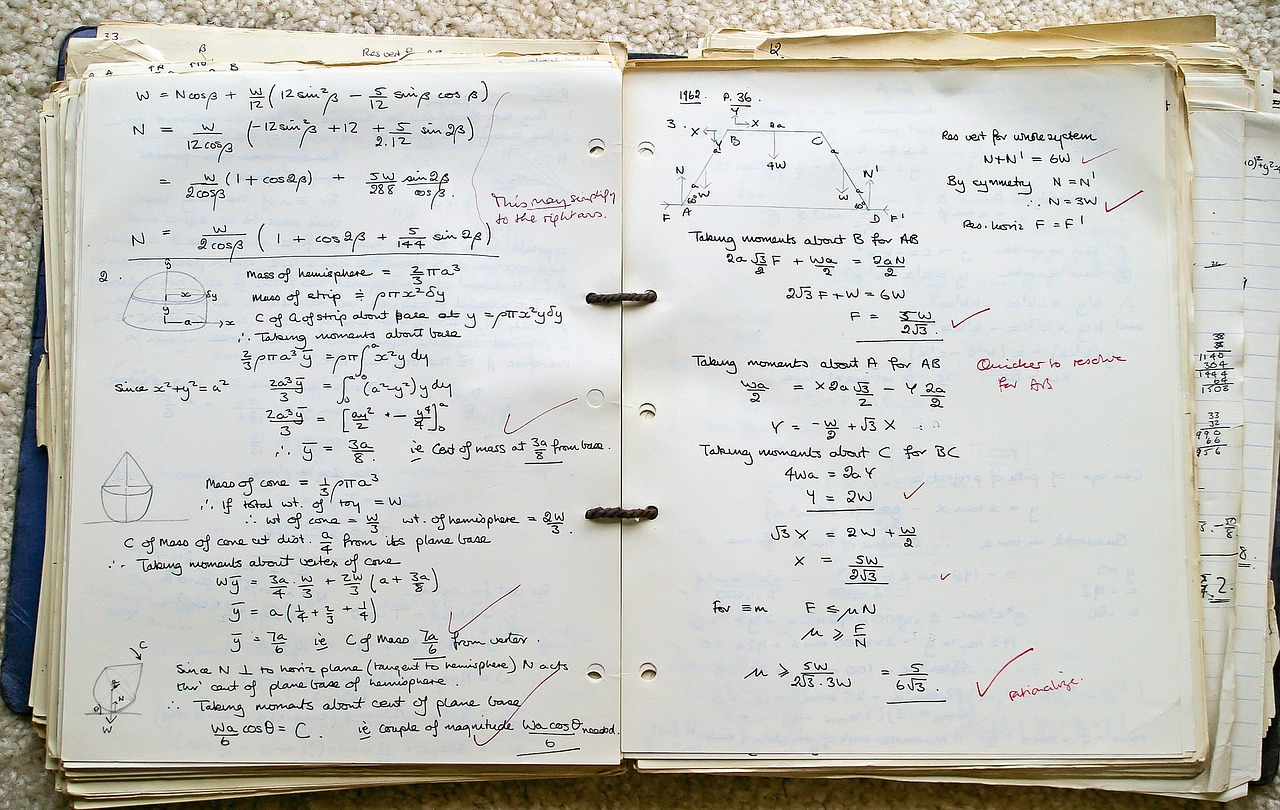 33.
β
Res vert
A
B
W = N cos β + W/12 (12 sin²β − 5/12 sin β cos β)
N = W/12cosβ (−12 sin²β + 12 + 5/2.12 sin 2β)
= W/2cosβ (1 + cos 2β) + 5W/288 sin 2β/cos β.
This may simplify
to the right ans.
N = W/2cosβ (1 + cos 2β + 5/144 sin 2β)
2.
y
x
δy
y
a
x
Mass of hemisphere = 2/3 πa³
Mass of strip ≑ ρπx²δy
C of G of strip about base at y = ρπx²yδy
∴ Taking moments about base
2/3 ρπa³ȳ = ρπ∫₀ᵃ x²y dy
Since x²+y² = a²
2a³ȳ/3 = ∫₀ᵃ (a²−y²) y dy
2a³ȳ/3 = [ay²/2 − y⁴/4]₀ᵃ
∴ ȳ = 3a/8 ie Cent of mass at 3a/8 from base.
Mass of cone = 1/3 ρπa³
∴ If total wt. of toy = W
∴ wt of cone = W/3 wt. of hemisphere = 2W/3.
C of Mass of cone at dist. a/4 from its plane base
∴ Taking moments about vertex of cone
Wȳ = 3a/4 · W/3 + 2W/3 (a + 3a/8)
ȳ = a(1/4 + 2/3 + 1/4)
ȳ = 7a/6 ie C of Mass 7a/6 from vertex.
C
N
θ
W
Since N ⊥ to horiz plane (tangent to hemisphere) N acts
thro' cent of plane base of hemisphere.
∴ Taking moments about cent of plane base
Wa/6 cosθ = C. ie couple of magnitude Wa cosθ/6 needed.
12.
1962. P. 36.
3.
Y
X
X
2a
B
C
Y
a
a
4W
N
N'
a
a
W
W
60°
60°
F
A
D
F'
Res vert for whole system
N+N' = 6W
By symmetry N = N'
∴ N = 3W
Res. horiz F = F'
Taking moments about B for AB
2a √3/2 F + Wa/2 = 2aN/2
2√3 F + W = 6W
F = 5W/2√3.
Taking moments about A for AB
Quicker to resolve
for AB
Wa/2 = X 2a √3/2 − Y 2a/2
Y = −W/2 + √3 X
Taking moments about C for BC
4Wa = 2aY
Y = 2W
√3 X = 2W + W/2
X = 5W/2√3
For ≡m F ≤ μN
μ ≥ F/N
μ ≥ 5W/2√3.3W = 5/6√3.
rationalize.
38
38
1140
304
1444
64
1508
33
32
990
66
956
8.
2.